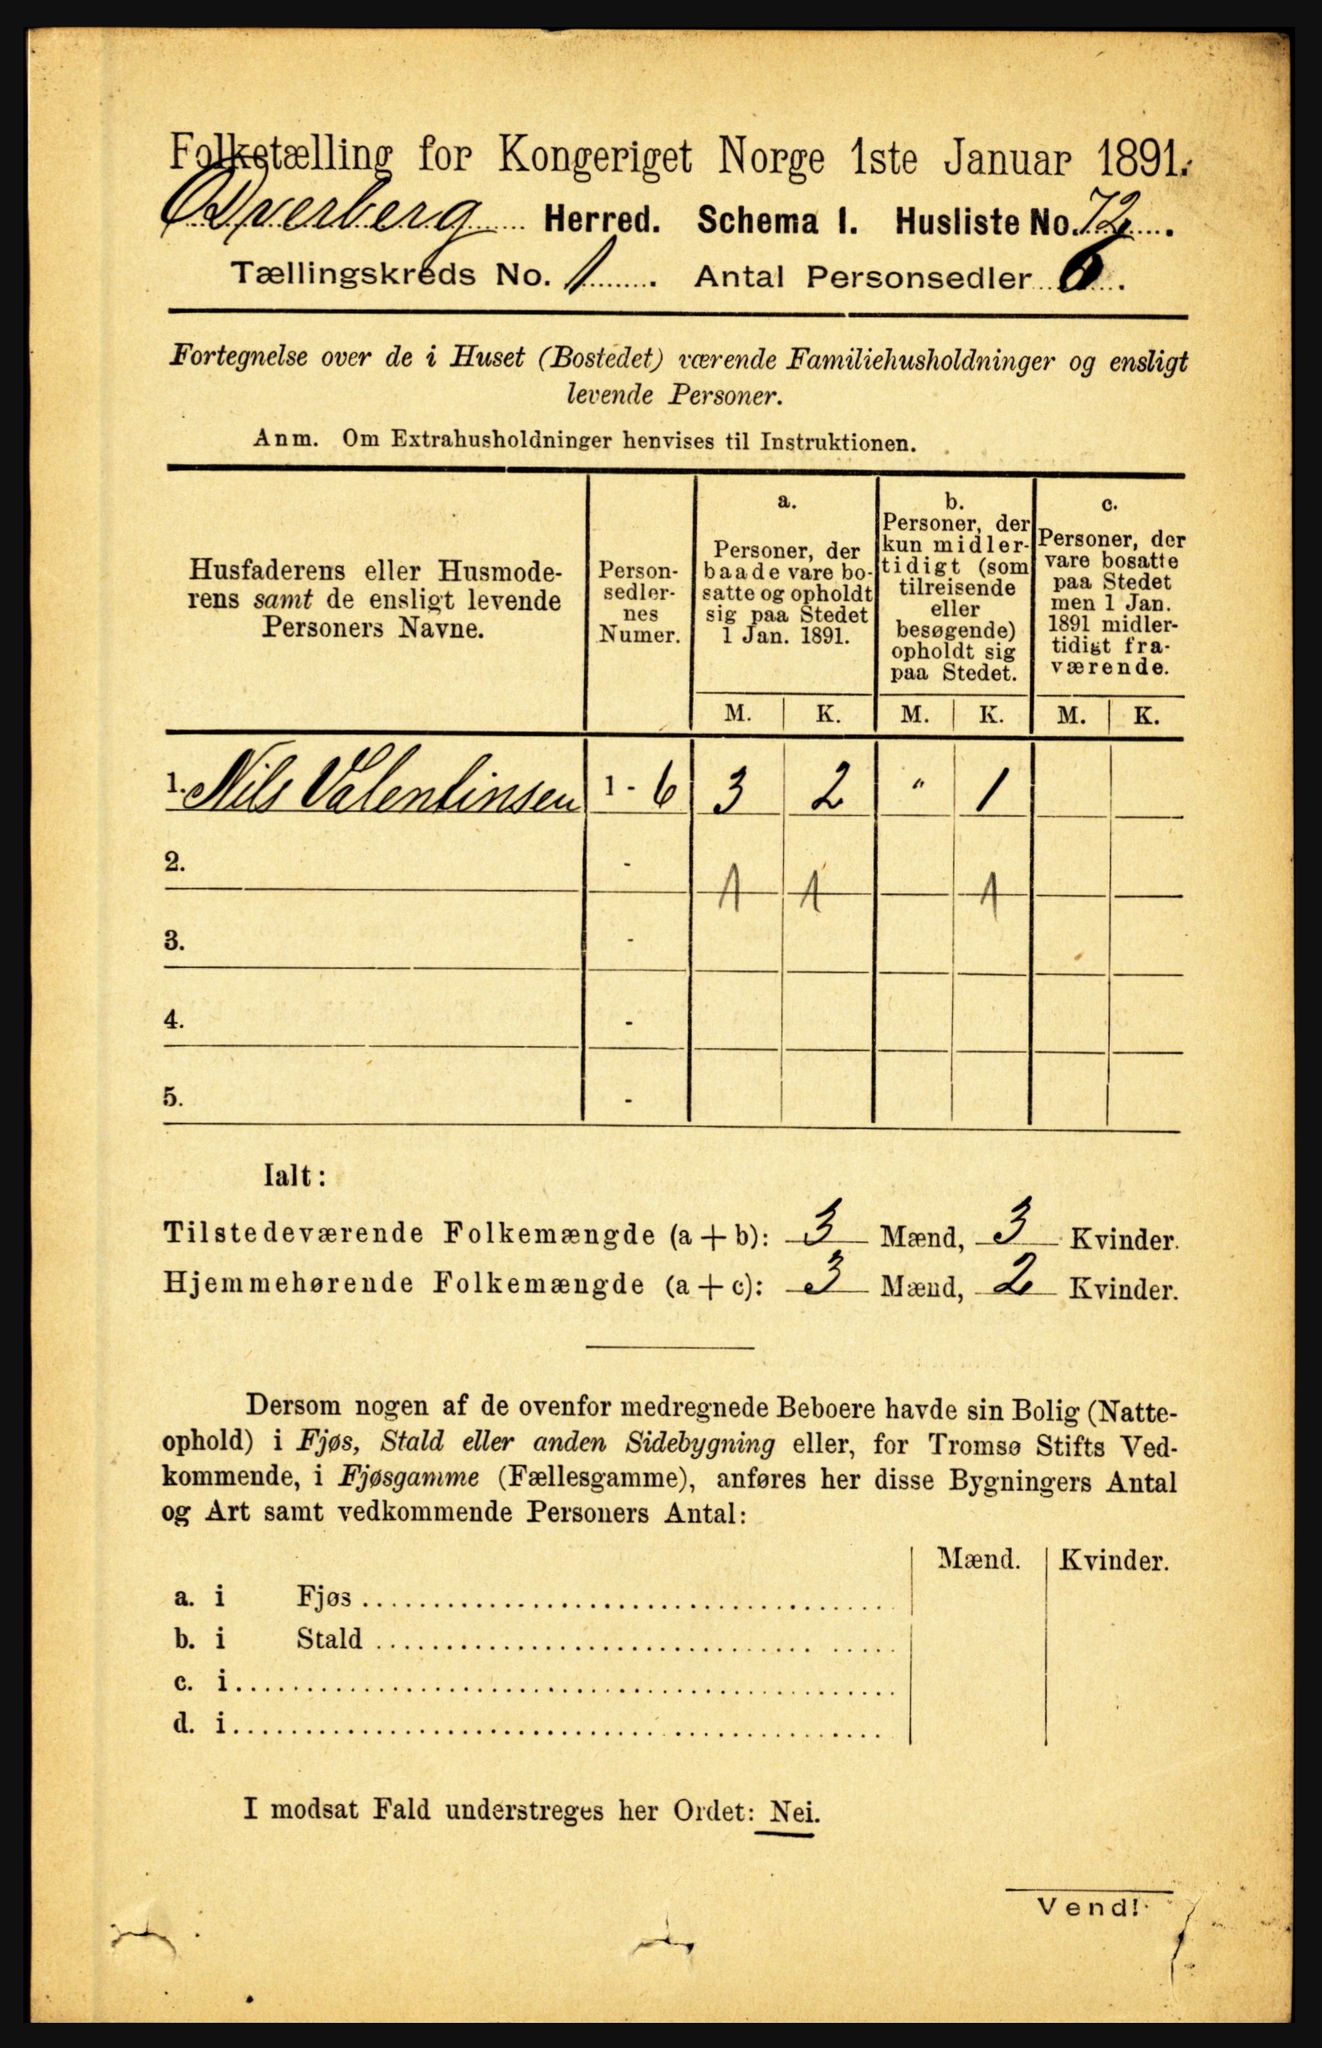 Folketælling for Kongeriget Norge 1ste Januar 1891.
Dverberg Herred. Schema I. Husliste No. 72.
Tællingskreds No. 1. Antal Personsedler 6.
Fortegnelse over de i Huset (Bostedet) værende Familiehusholdninger og ensligt
levende Personer.
Anm. Om Extrahusholdninger henvises til Instruktionen.
Husfaderens eller Husmode-
rens samt de ensligt levende
Personers Navne.
Person-
sedler-
nes
Numer.
a.
Personer, der
baade vare bo-
satte og opholdt
sig paa Stedet
1 Jan. 1891.
b.
Personer, der
kun midler-
tidigt (som
tilreisende
eller
besøgende)
opholdt sig
paa Stedet.
c.
Personer, der
vare bosatte
paa Stedet
men 1 Jan.
1891 midler-
tidigt fra-
værende.
M. K. M. K. M. K.
1. Nils Valentinsen 1 - 6 3 2 " 1
2. -
1 1 1
3. -
4. -
5. -
Ialt:
Tilstedeværende Folkemængde (a + b): 3 Mænd, 3 Kvinder.
Hjemmehørende Folkemængde (a + c): 3 Mænd, 2 Kvinder.
Dersom nogen af de ovenfor medregnede Beboere havde sin Bolig (Natte-
ophold) i Fjøs, Stald eller anden Sidebygning eller, for Tromsø Stifts Ved-
kommende, i Fjøsgamme (Fællesgamme), anføres her disse Bygningers Antal
og Art samt vedkommende Personers Antal:
Mænd. Kvinder.
a. i Fjøs
b. i Stald
c. i
d. i
I modsat Fald understreges her Ordet: Nei.
Vend!